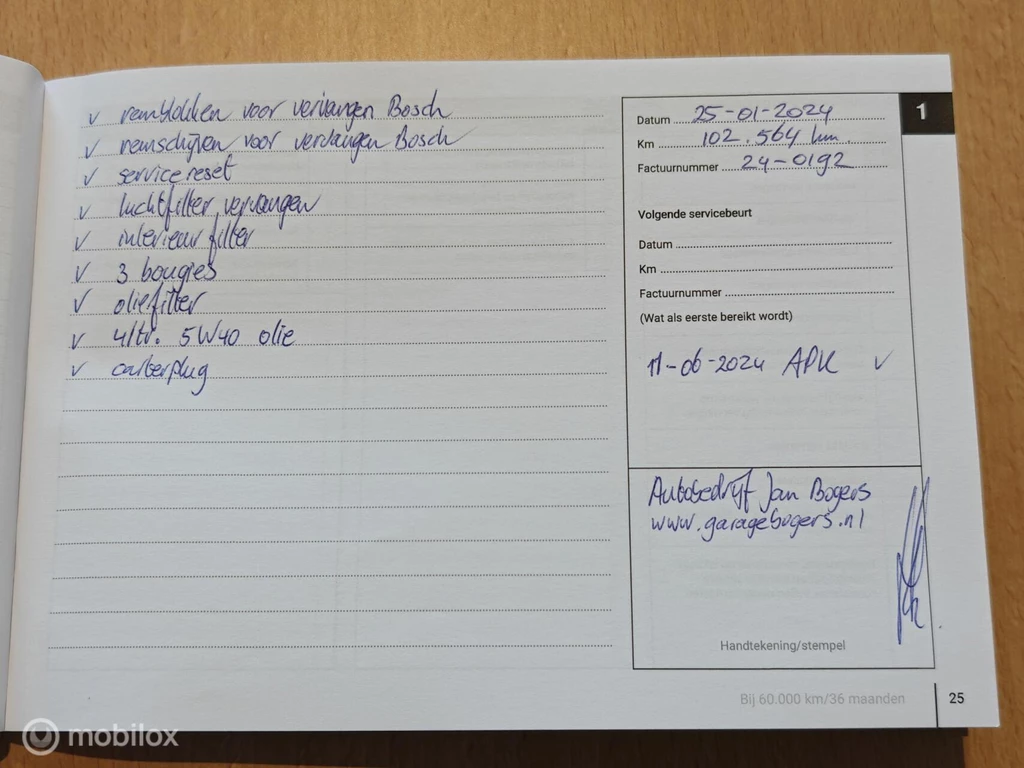 v remblokken voor vervangen Bosch
v remschijven voor vervangen Bosch
v service reset
v luchtfilter vervangen
v interieurfilter
v 3 bougies
v oliefilter
v 4ltr. 5W40 olie
v carterplug
1
Datum 25-01-2024
Km 102.564 km.
Factuurnummer 24-0192
Volgende servicebeurt
Datum
Km
Factuurnummer
(Wat als eerste bereikt wordt)
11-06-2024 APK v
Autobedrijf Jan Bogers
www.garagebogers.nl
Handtekening/stempel
Bij 60.000 km/36 maanden 25
mobilox